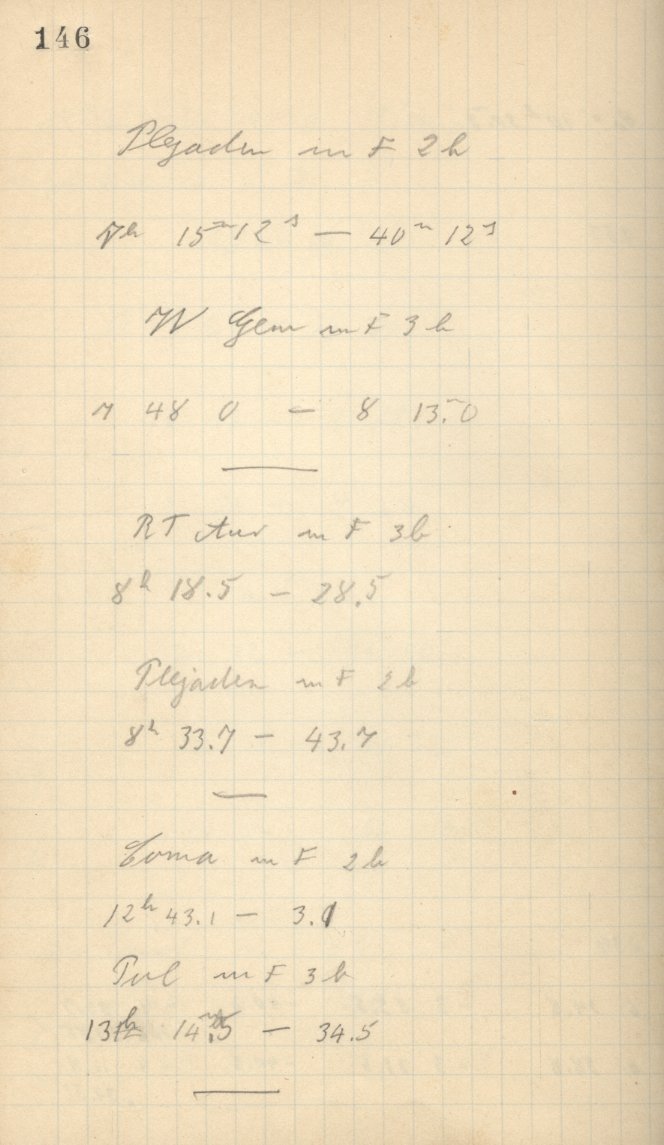 146
Plejaden m F 2h
7h 15m 12s — 40m 12s
W Gem m F 3h
7 48 0 — 8 13m.0
RT Aur m F 3b
8h 18.5 — 28.5
Plejaden m F 2b
8h 33.7 — 43.7
Coma m F 2b
12h 43.1 — 3.1
Pol m F 3b
13h 14m.5 — 34.5